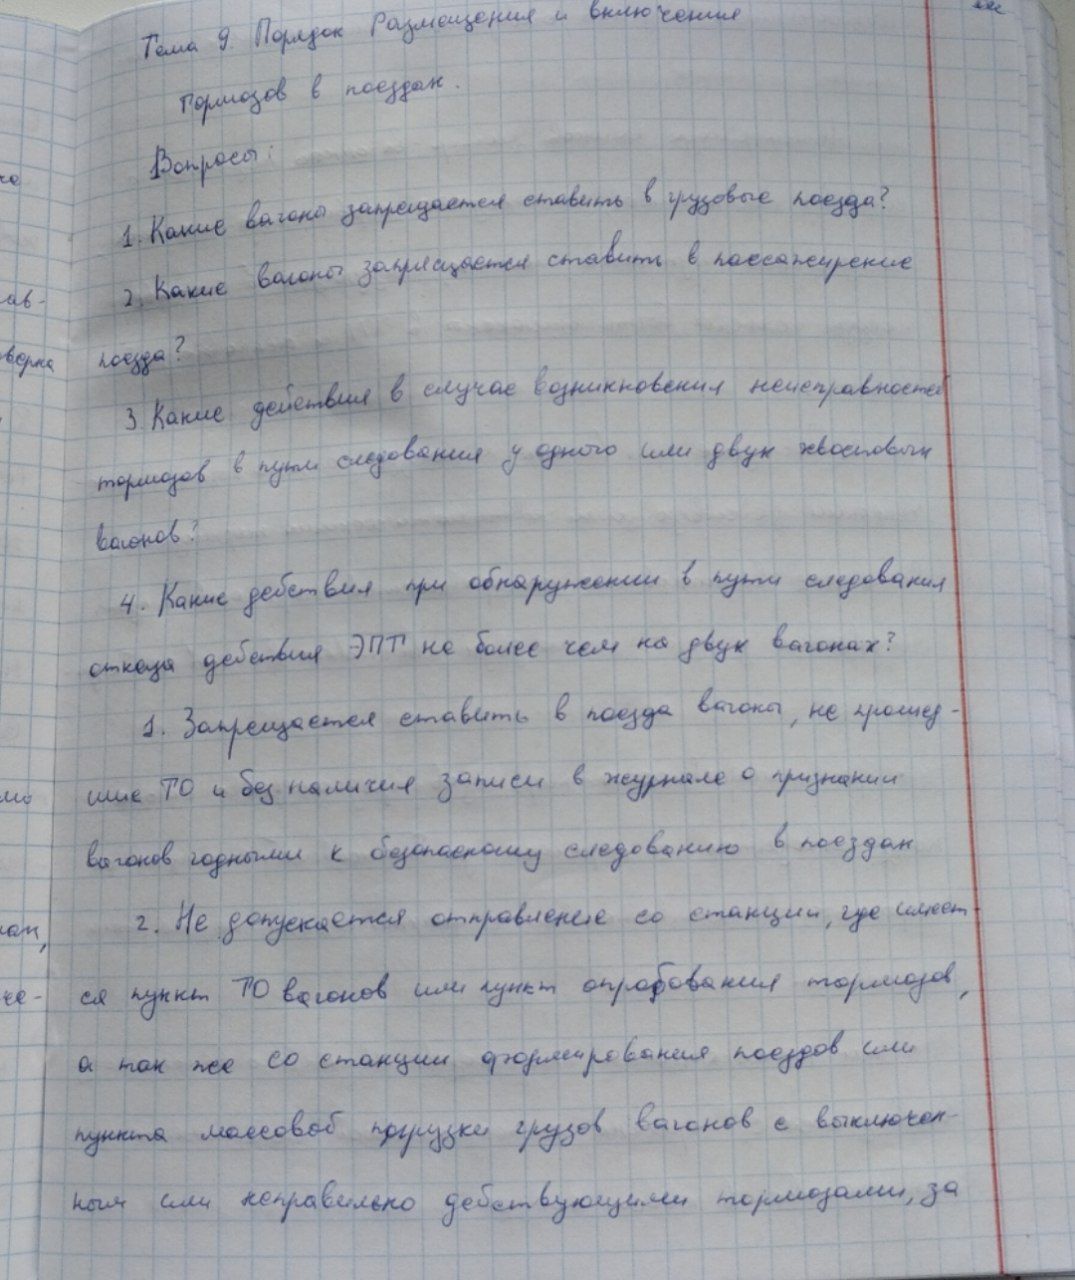 Тема 9. Порядок размещения и включения
тормозов в поездах.
Вопросы:
1. Какие вагоны запрещается ставить в грузовые поезда?
2. Какие вагоны запрещается ставить в пассажирские
поезда?
3. Какие действия в случае возникновения неисправностей
тормозов в пути следования у одного или двух хвостовых
вагонов?
4. Какие действия при обнаружении в пути следования
отказа действия ЭПТ не более чем на двух вагонах?
1. Запрещается ставить в поезда вагоны, не прошед-
шие ТО и без наличия записи в журнале о признании
вагонов годными к безопасному следованию в поездах
2. Не допускается отправление со станции, где имеет-
ся пункт ТО вагонов или пункт опробования тормозов,
а так же со станции формирования поездов или
пункта массовой погрузки грузов вагонов с выключен-
ным или неправильно действующими тормозами, за